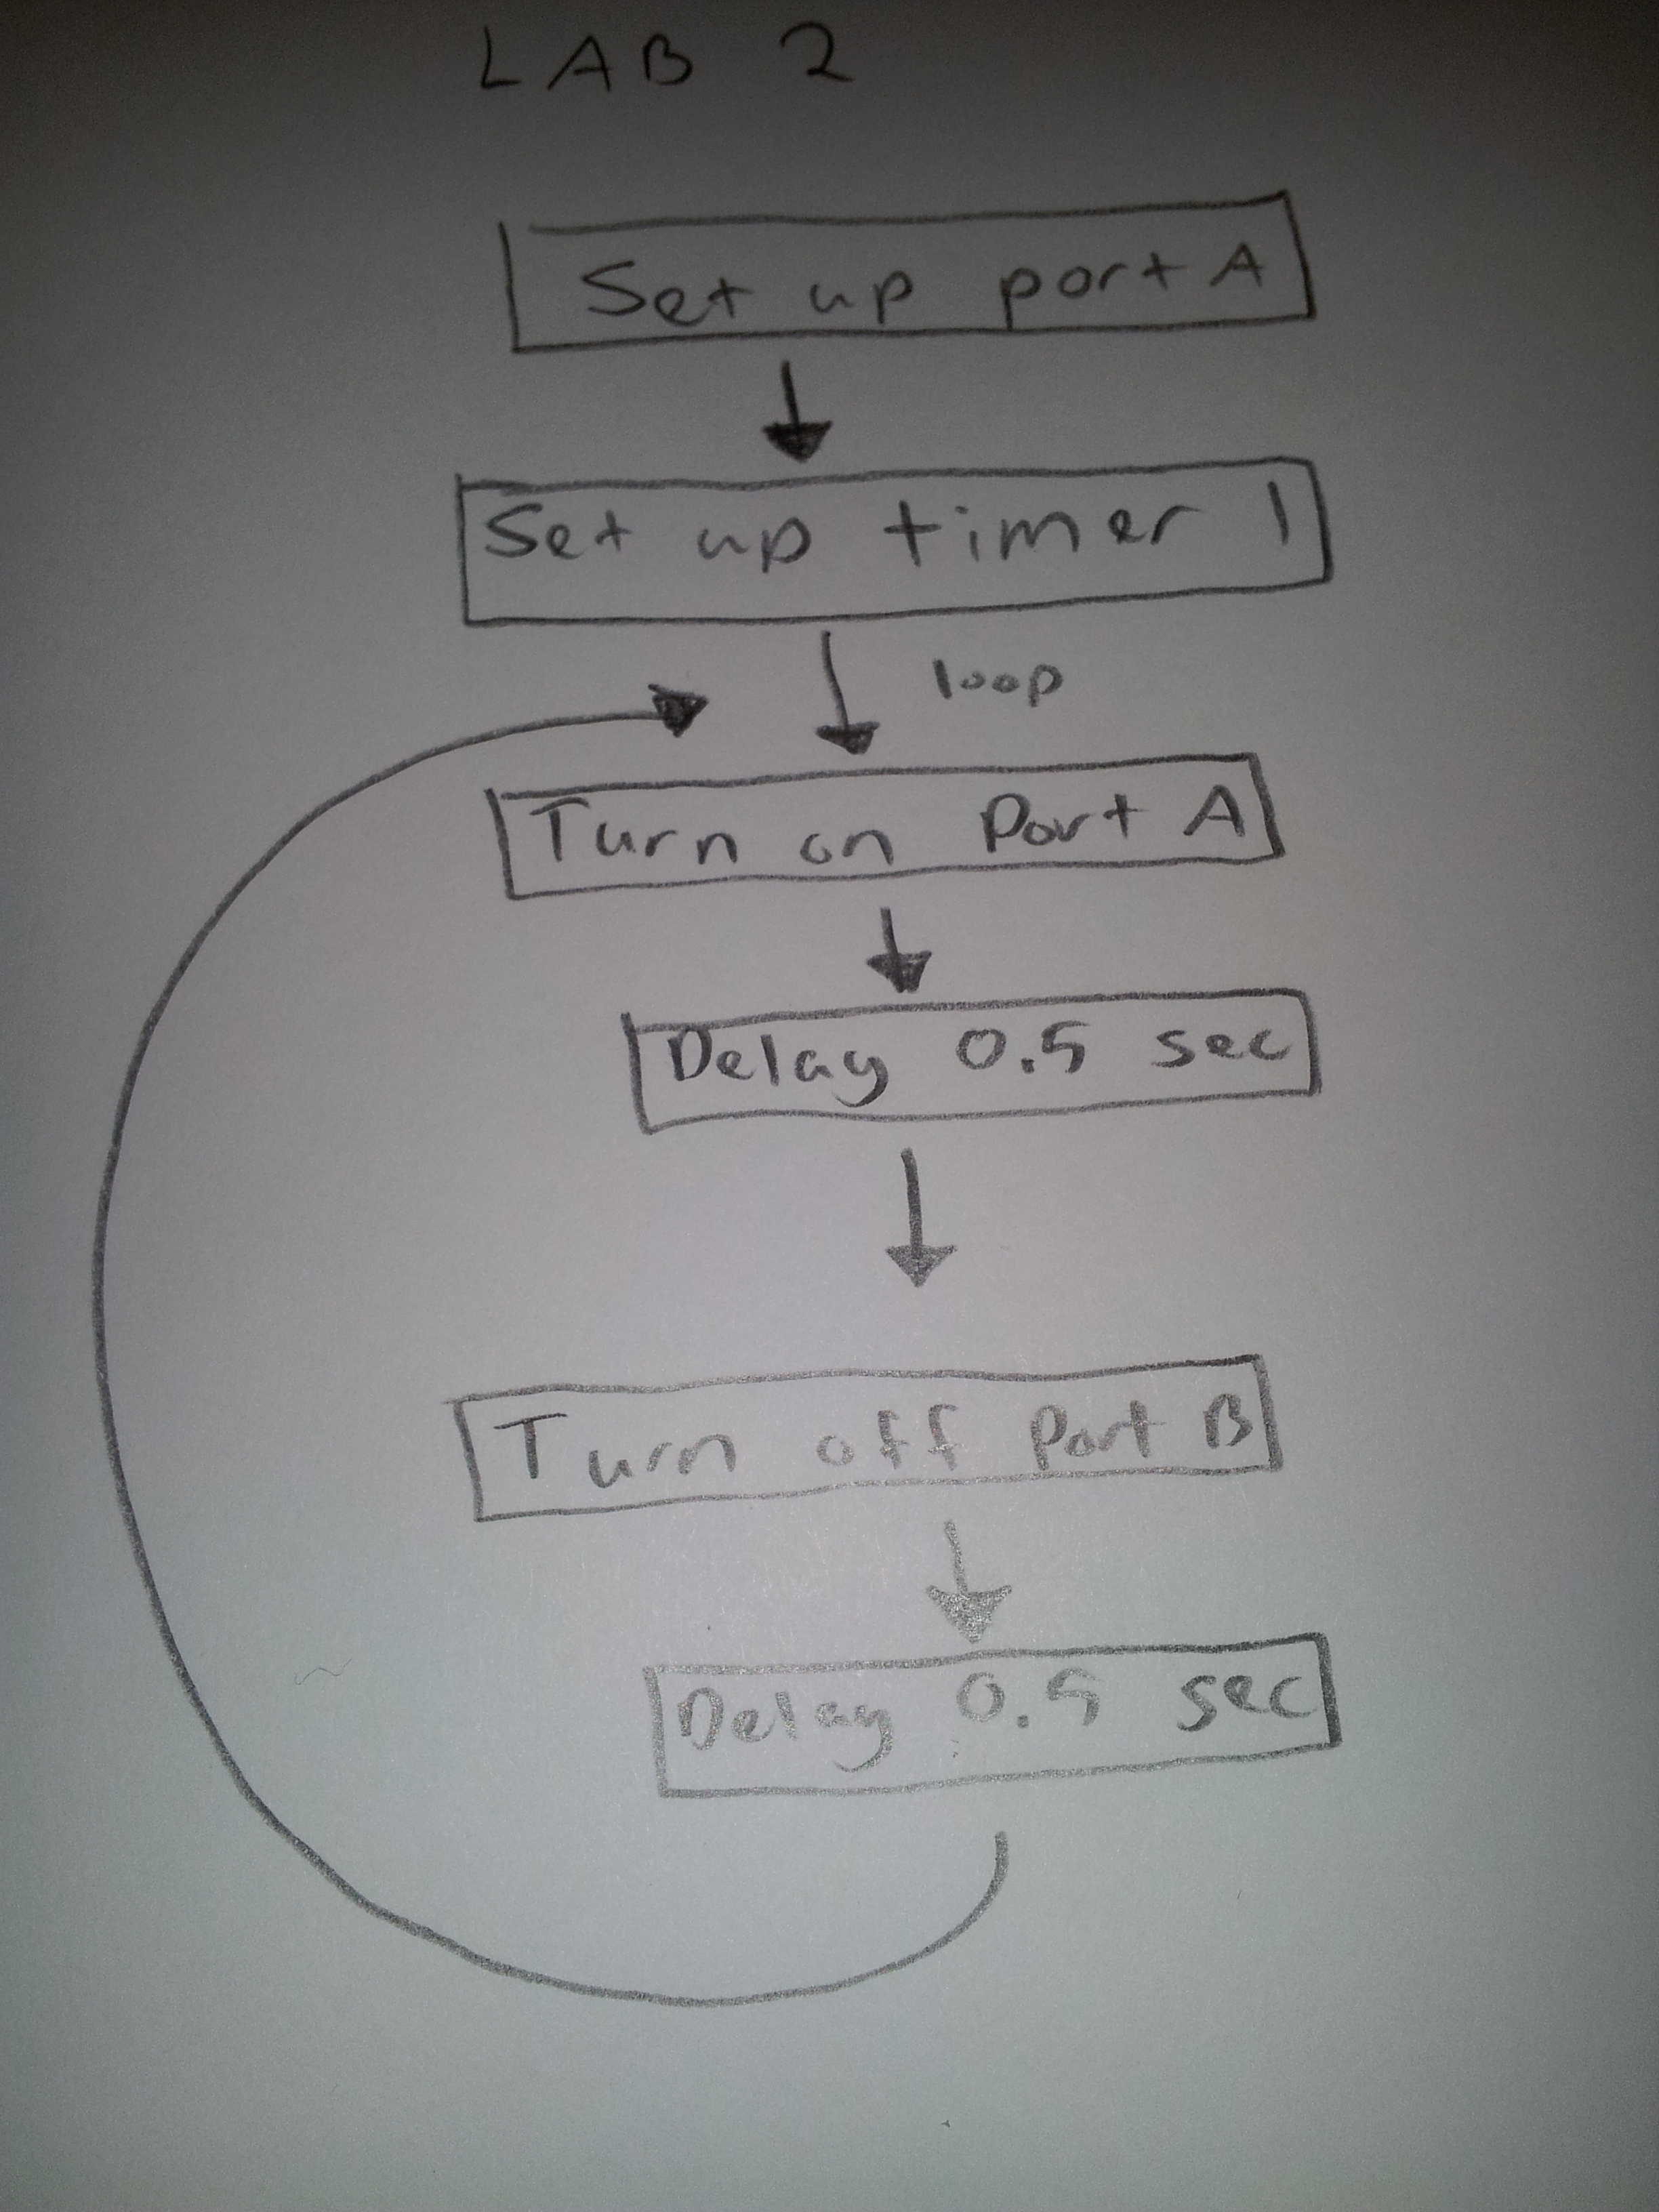 LAB 2
Set up port A
Set up timer 1
loop
Turn on Port A
Delay 0.5 sec
Turn off Port B
Delay 0.5 sec